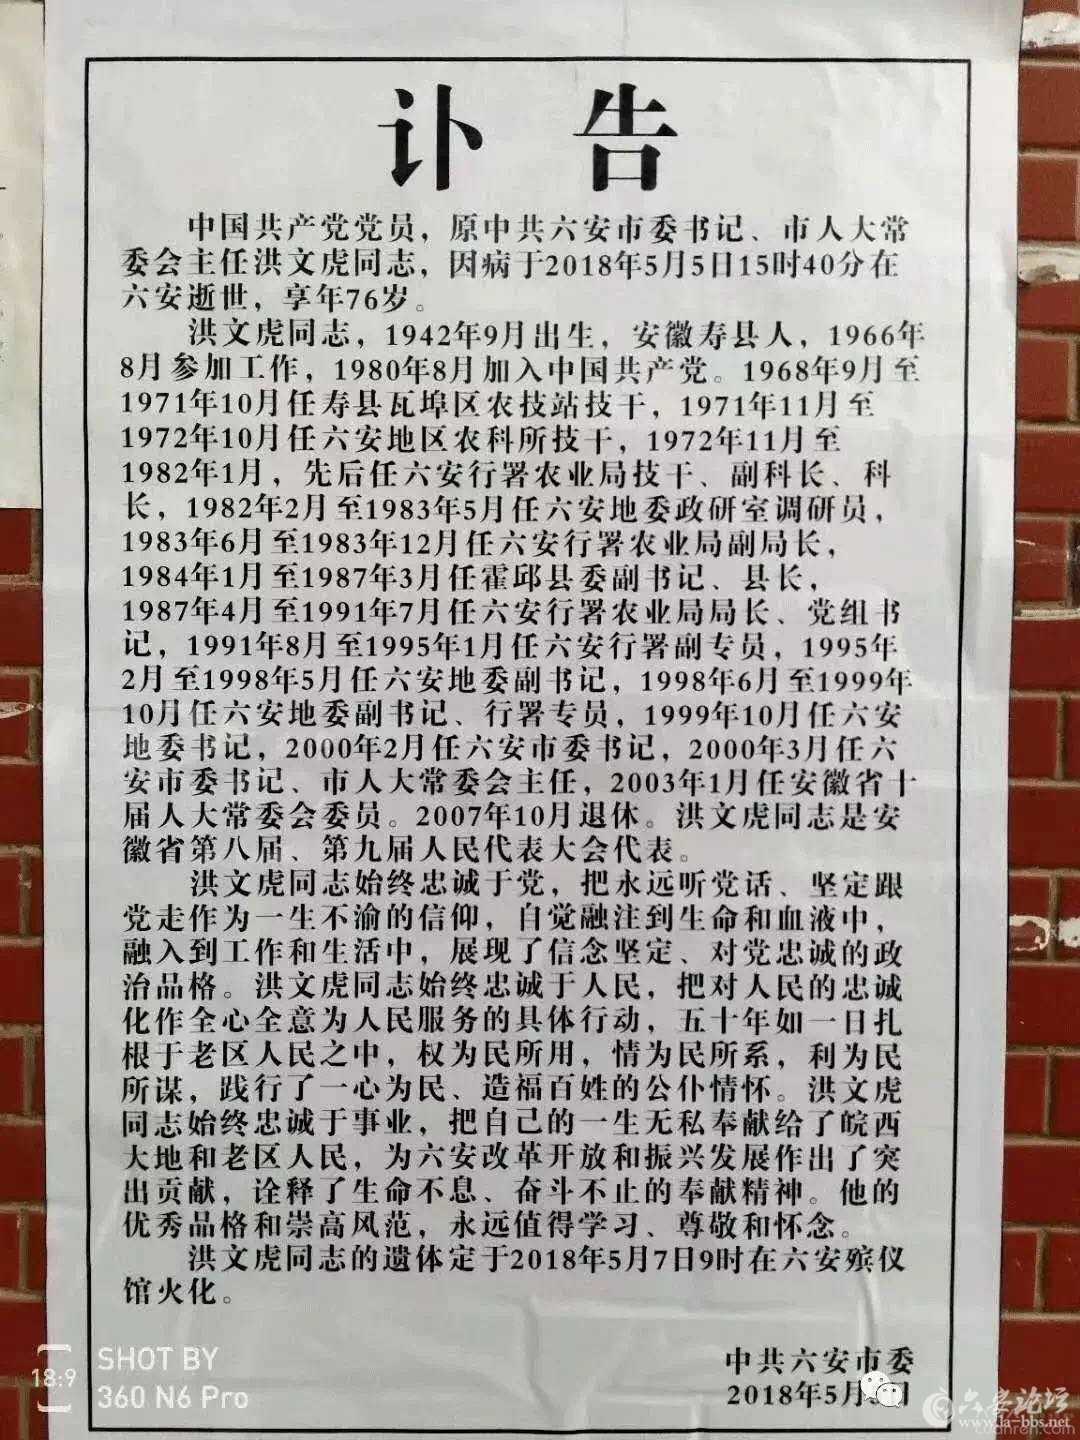 讣 告
中国共产党党员，原中共六安市委书记、市人大常
委会主任洪文虎同志，因病于2018年5月5日15时40分在
六安逝世，享年76岁。
洪文虎同志，1942年9月出生，安徽寿县人，1966年
8月参加工作，1980年8月加入中国共产党。1968年9月至
1971年10月任寿县瓦埠区农技站技干，1971年11月至
1972年10月任六安地区农科所技干，1972年11月至
1982年1月，先后任六安行署农业局技干、副科长、科
长，1982年2月至1983年5月任六安地委政研室调研员，
1983年6月至1983年12月任六安行署农业局副局长，
1984年1月至1987年3月任霍邱县委副书记、县长，
1987年4月至1991年7月任六安行署农业局局长、党组书
记，1991年8月至1995年1月任六安行署副专员，1995年
2月至1998年5月任六安地委副书记，1998年6月至1999年
10月任六安地委副书记、行署专员，1999年10月任六安
地委书记，2000年2月任六安市委书记，2000年3月任六
安市委书记、市人大常委会主任，2003年1月任安徽省十
届人大常委会委员。2007年10月退休。洪文虎同志是安
徽省第八届、第九届人民代表大会代表。
洪文虎同志始终忠诚于党，把永远听党话、坚定跟
党走作为一生不渝的信仰，自觉融注到生命和血液中，
融入到工作和生活中，展现了信念坚定、对党忠诚的政
治品格。洪文虎同志始终忠诚于人民，把对人民的忠诚
化作全心全意为人民服务的具体行动，五十年如一日扎
根于老区人民之中，权为民所用，情为民所系，利为民
所谋，践行了一心为民、造福百姓的公仆情怀。洪文虎
同志始终忠诚于事业，把自己的一生无私奉献给了皖西
大地和老区人民，为六安改革开放和振兴发展作出了突
出贡献，诠释了生命不息、奋斗不止的奉献精神。他的
优秀品格和崇高风范，永远值得学习、尊敬和怀念。
洪文虎同志的遗体定于2018年5月7日9时在六安殡仪
馆火化。
中共六安市委
2018年5月 日
18:9
SHOT BY
360 N6 Pro
六安论坛
www.la-bbs.net